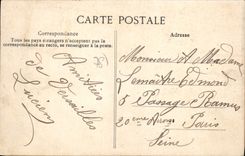 CARTE POSTALE
Correspondance
Tous les pays étrangers n'acceptent pas la
correspondance au recto, se renseigner à la poste.
Adresse
Amitiés
de Versailles
Lucien
Monsieur et Madame
Lemaître Edmond
5 Passage Ramey
20ème Arrong Paris
Seine